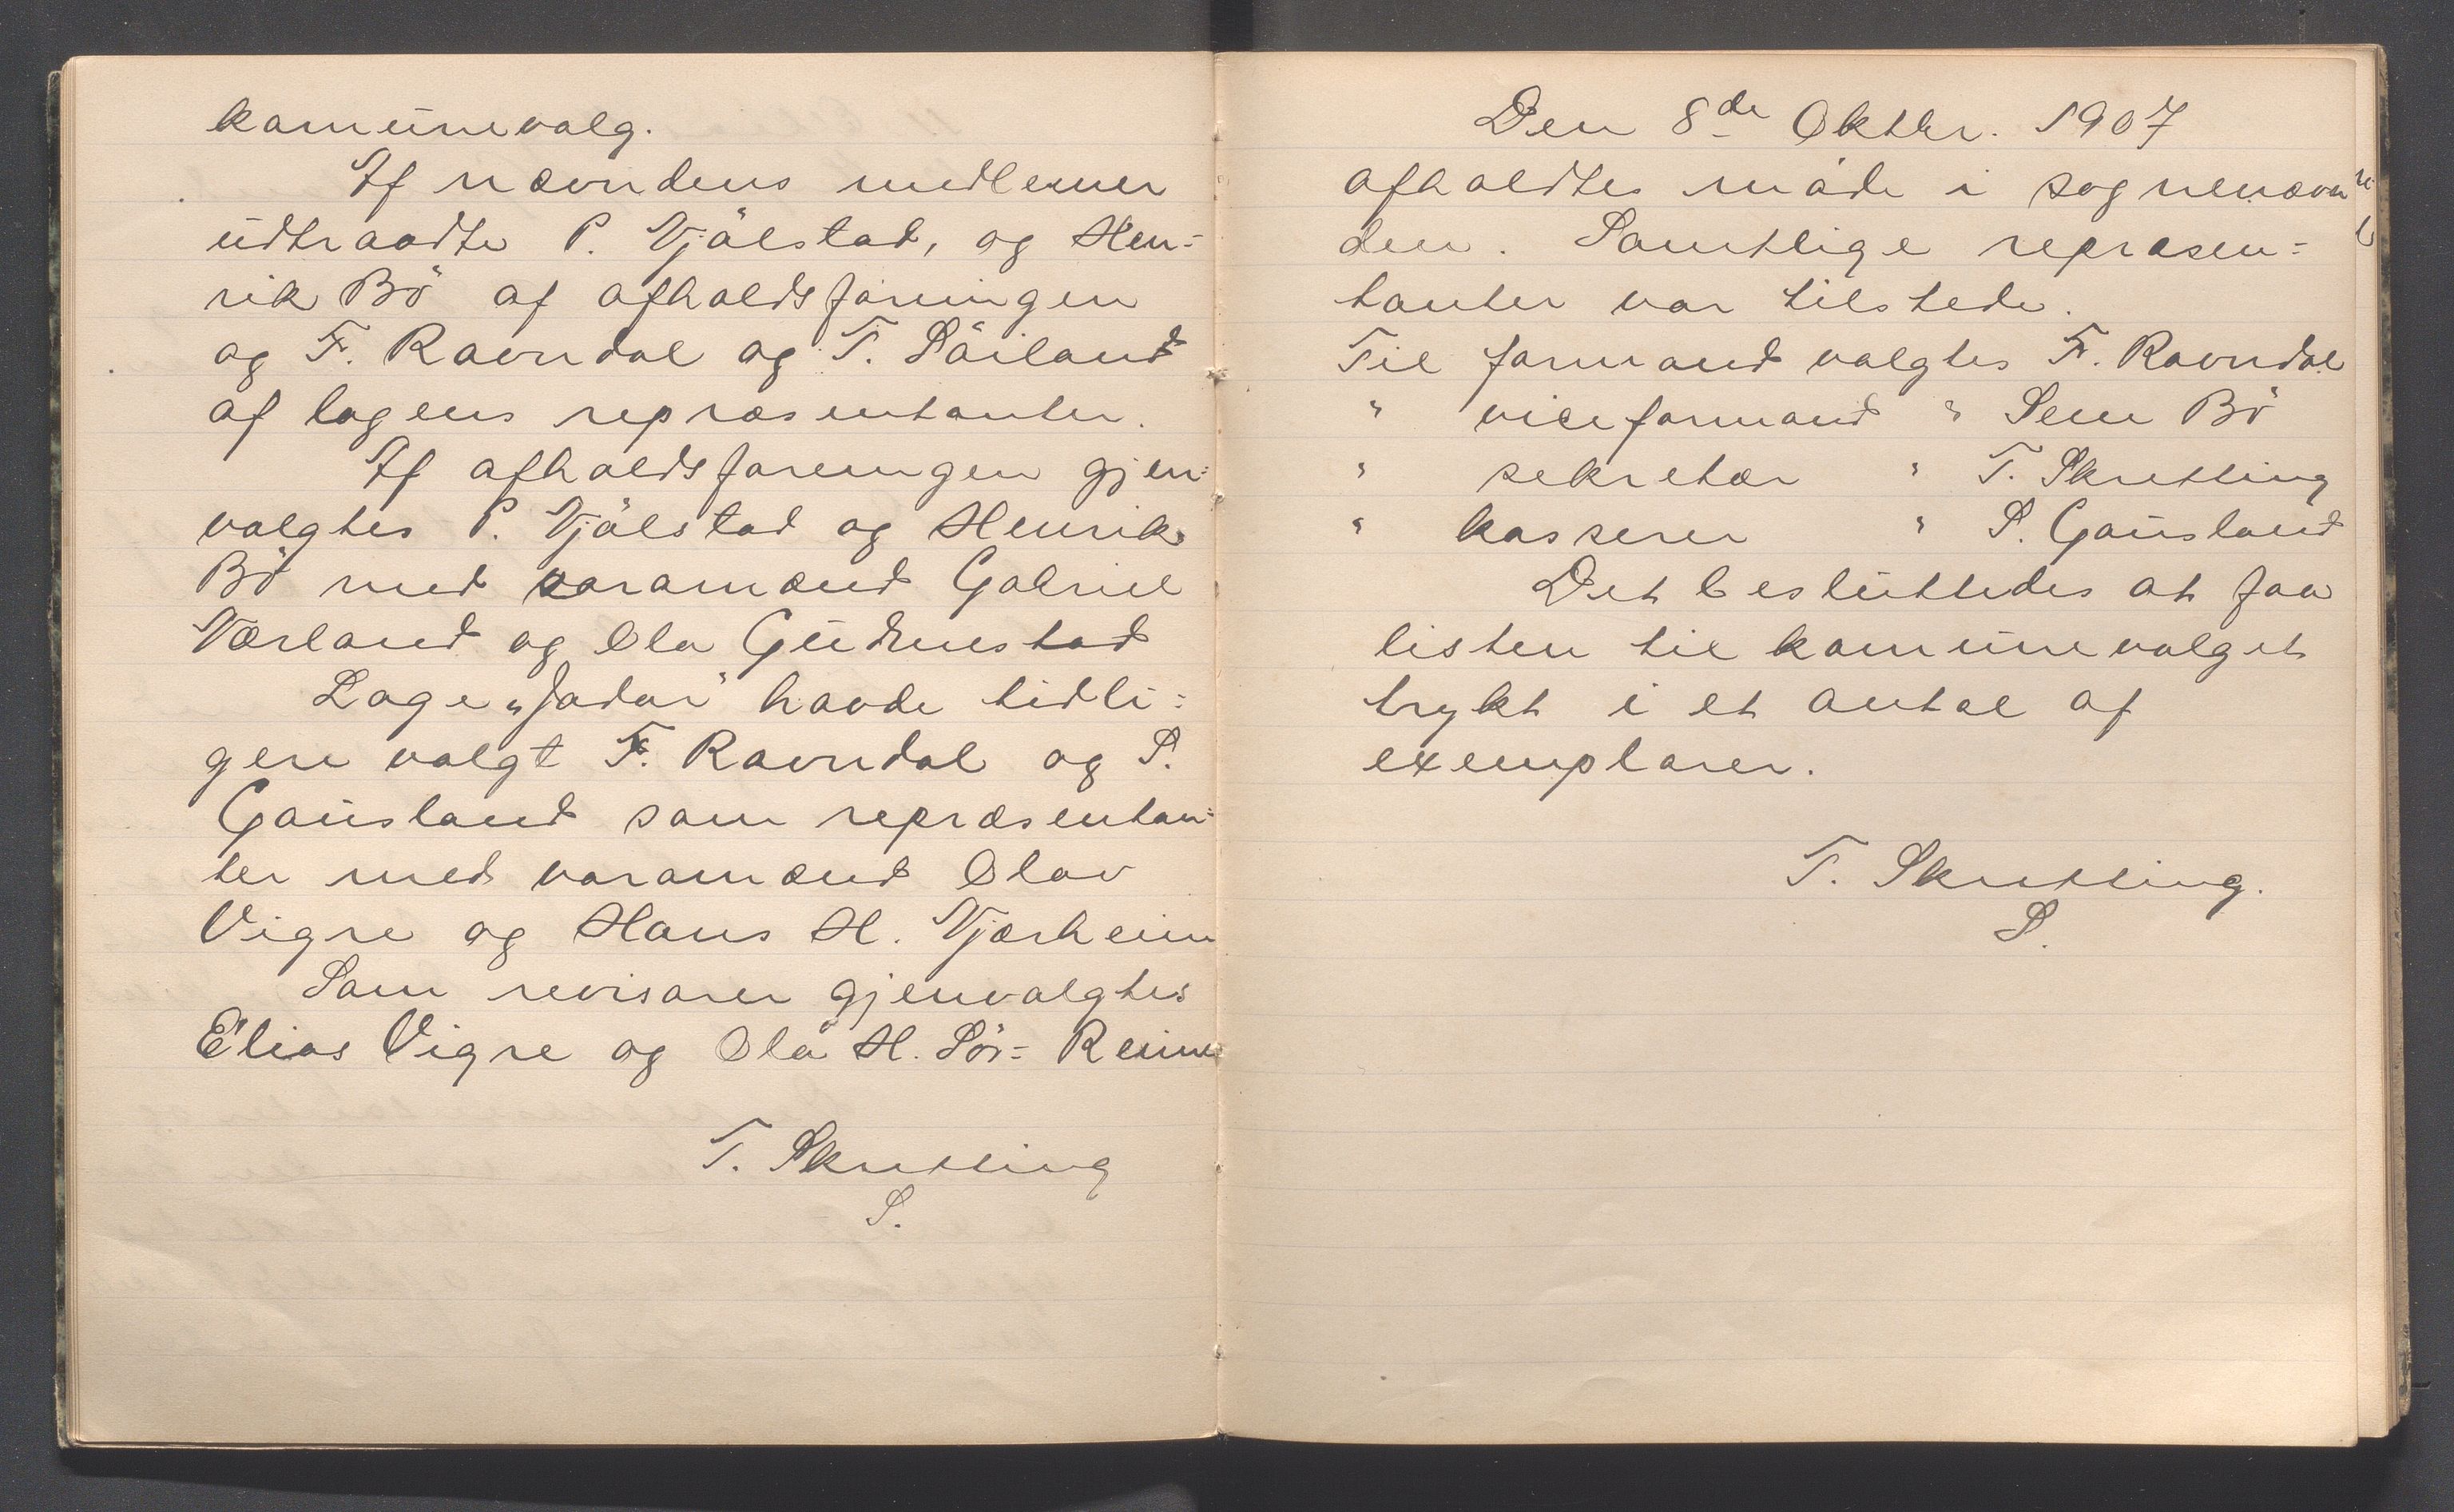 komunevalg.
Af nævndens medlemer
udtraadte P. Njålstad, og Hen-
rik Bö af afholdsforeningen
og F. Ravndal og T. Söiland
af logens repræsentanter.
Af afholdsforeningen gjen-
valgtes P. Njålstad og Henrik
Bö med varamænd Gabriel
Nærland og Ola Gudmestad
Loge „Jadar" havde tidli-
gere valgt F. Ravndal og S.
Gausland som repræsentan-
ter med varamænd Olav
Vigre og Hans H. Njærheim
Som revisorer gjenvalgtes
Elias Vigre og Ola H. Sör-Reime
T. Skretting
S.
Den 8de Oktbr. 1907
afholdtes måde i sognenævn
den. Samtlige repræsen-
tanter var tilstede.
Til formand valgtes F. Ravndal
" viceformand " Sem Bö
" sekretær " T. Skretting
" kasserer " S. Gausland
Det besluttedes at faa
listen til komunevalget
trykt i et antal af
exemplarer.
T. Skretting.
S.